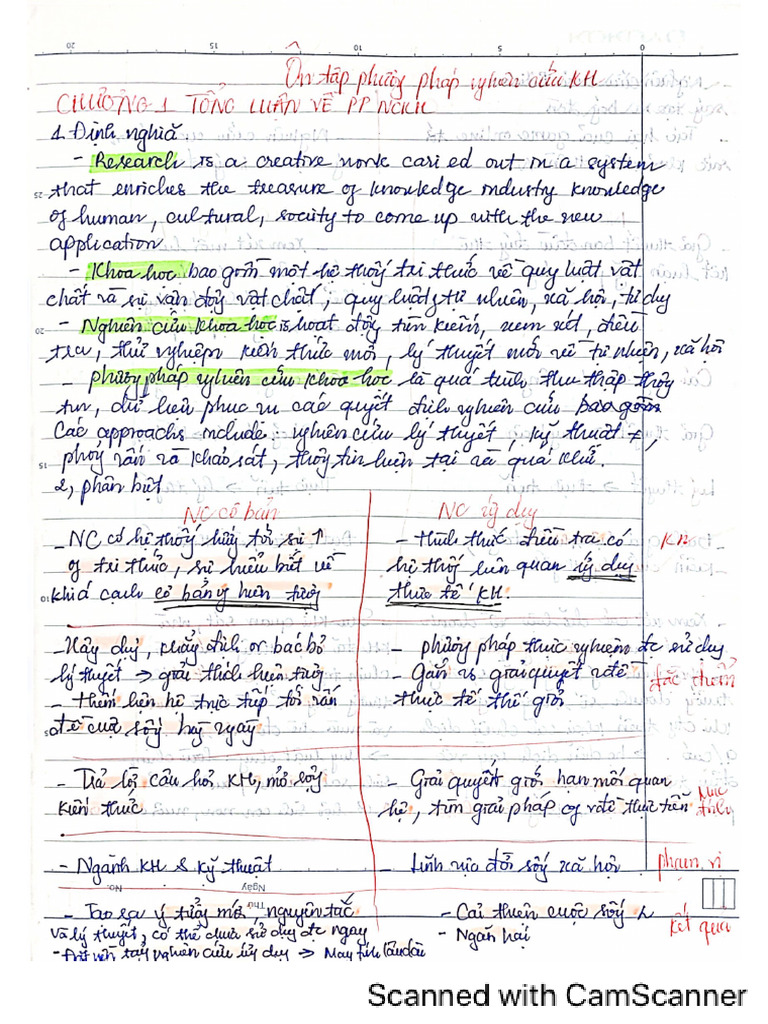 Ôn tập phương pháp nghiên cứu KH
CHƯƠNG 1 TỔNG LUẬN VỀ PP NCKH
1. Định nghĩa
- Research is a creative work caried out in a system
that enriches the treasure of knowledge industry knowledge
of human, cultural, society to come up with the new
application
- Khoa học bao gồm một hệ thống tri thức về quy luật vật
chất và sự vận động vật chất, quy luật tự nhiên, xã hội, tư duy
- Nghiên cứu khoa học is hoạt động tìm kiếm, xem xét, điều
tra, thử nghiệm kiến thức mới, lý thuyết mới về tự nhiên, xã hội
- phương pháp nghiên cứu khoa học là quá trình thu thập thông
tin, dữ liệu phục vụ các quyết định nghiên cứu bao gồm
Các approachs include: nghiên cứu lý thuyết, kỹ thuật ≠,
phỏng vấn và khảo sát, thông tin hiện tại và quá khứ.
2, phân biệt
NC cơ bản NC ứg dụng
- NC có hệ thống hướng tới sự ↑ - Hình thức điều tra có KN
of tri thức, sự hiểu biết về hệ thống liên quan ứg dụg
khía cạnh cơ bản hiện tượng thực tế KH.
- Xây dựg, khẳng định or bác bỏ - phương pháp thực nghiệm đc sử dụg
lý thuyết → giải thích hiện tượng - Gắn vs giải quyết vđề đặc điểm
- Thiếu liên hệ trực tiếp tới vấn thực tế thế giới
đề của sốg hàg ngày
- Trả lời câu hỏi KH, mở rộng - Giải quyết giới hạn mối quan Mục
kiến thức hệ, tìm giải pháp vđề thực tiễn đích
- Ngành KH & Kỹ thuật - Lĩnh vực đời sốg xã hội phạm vi
Ngày No.
- Tạo ra ý tưởg mới, nguyên tắc - Cải thiện cuộc sốg kết quả
Thứ
và lý thuyết, có thể chưa sử dụg đc ngay - Ngắn hạn
- Đặt nền tảg nghiên cứu ứg dụg → Mang tính lâu dài
Scanned with CamScanner